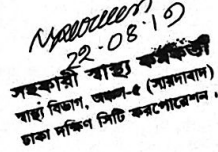 22-08-19
সহকারী স্বাস্থ্য কর্মকর্তা
স্বাস্থ্য বিভাগ, অঞ্চল-৫ (সায়দাবাদ)
ঢাকা দক্ষিণ সিটি করপোরেশন।